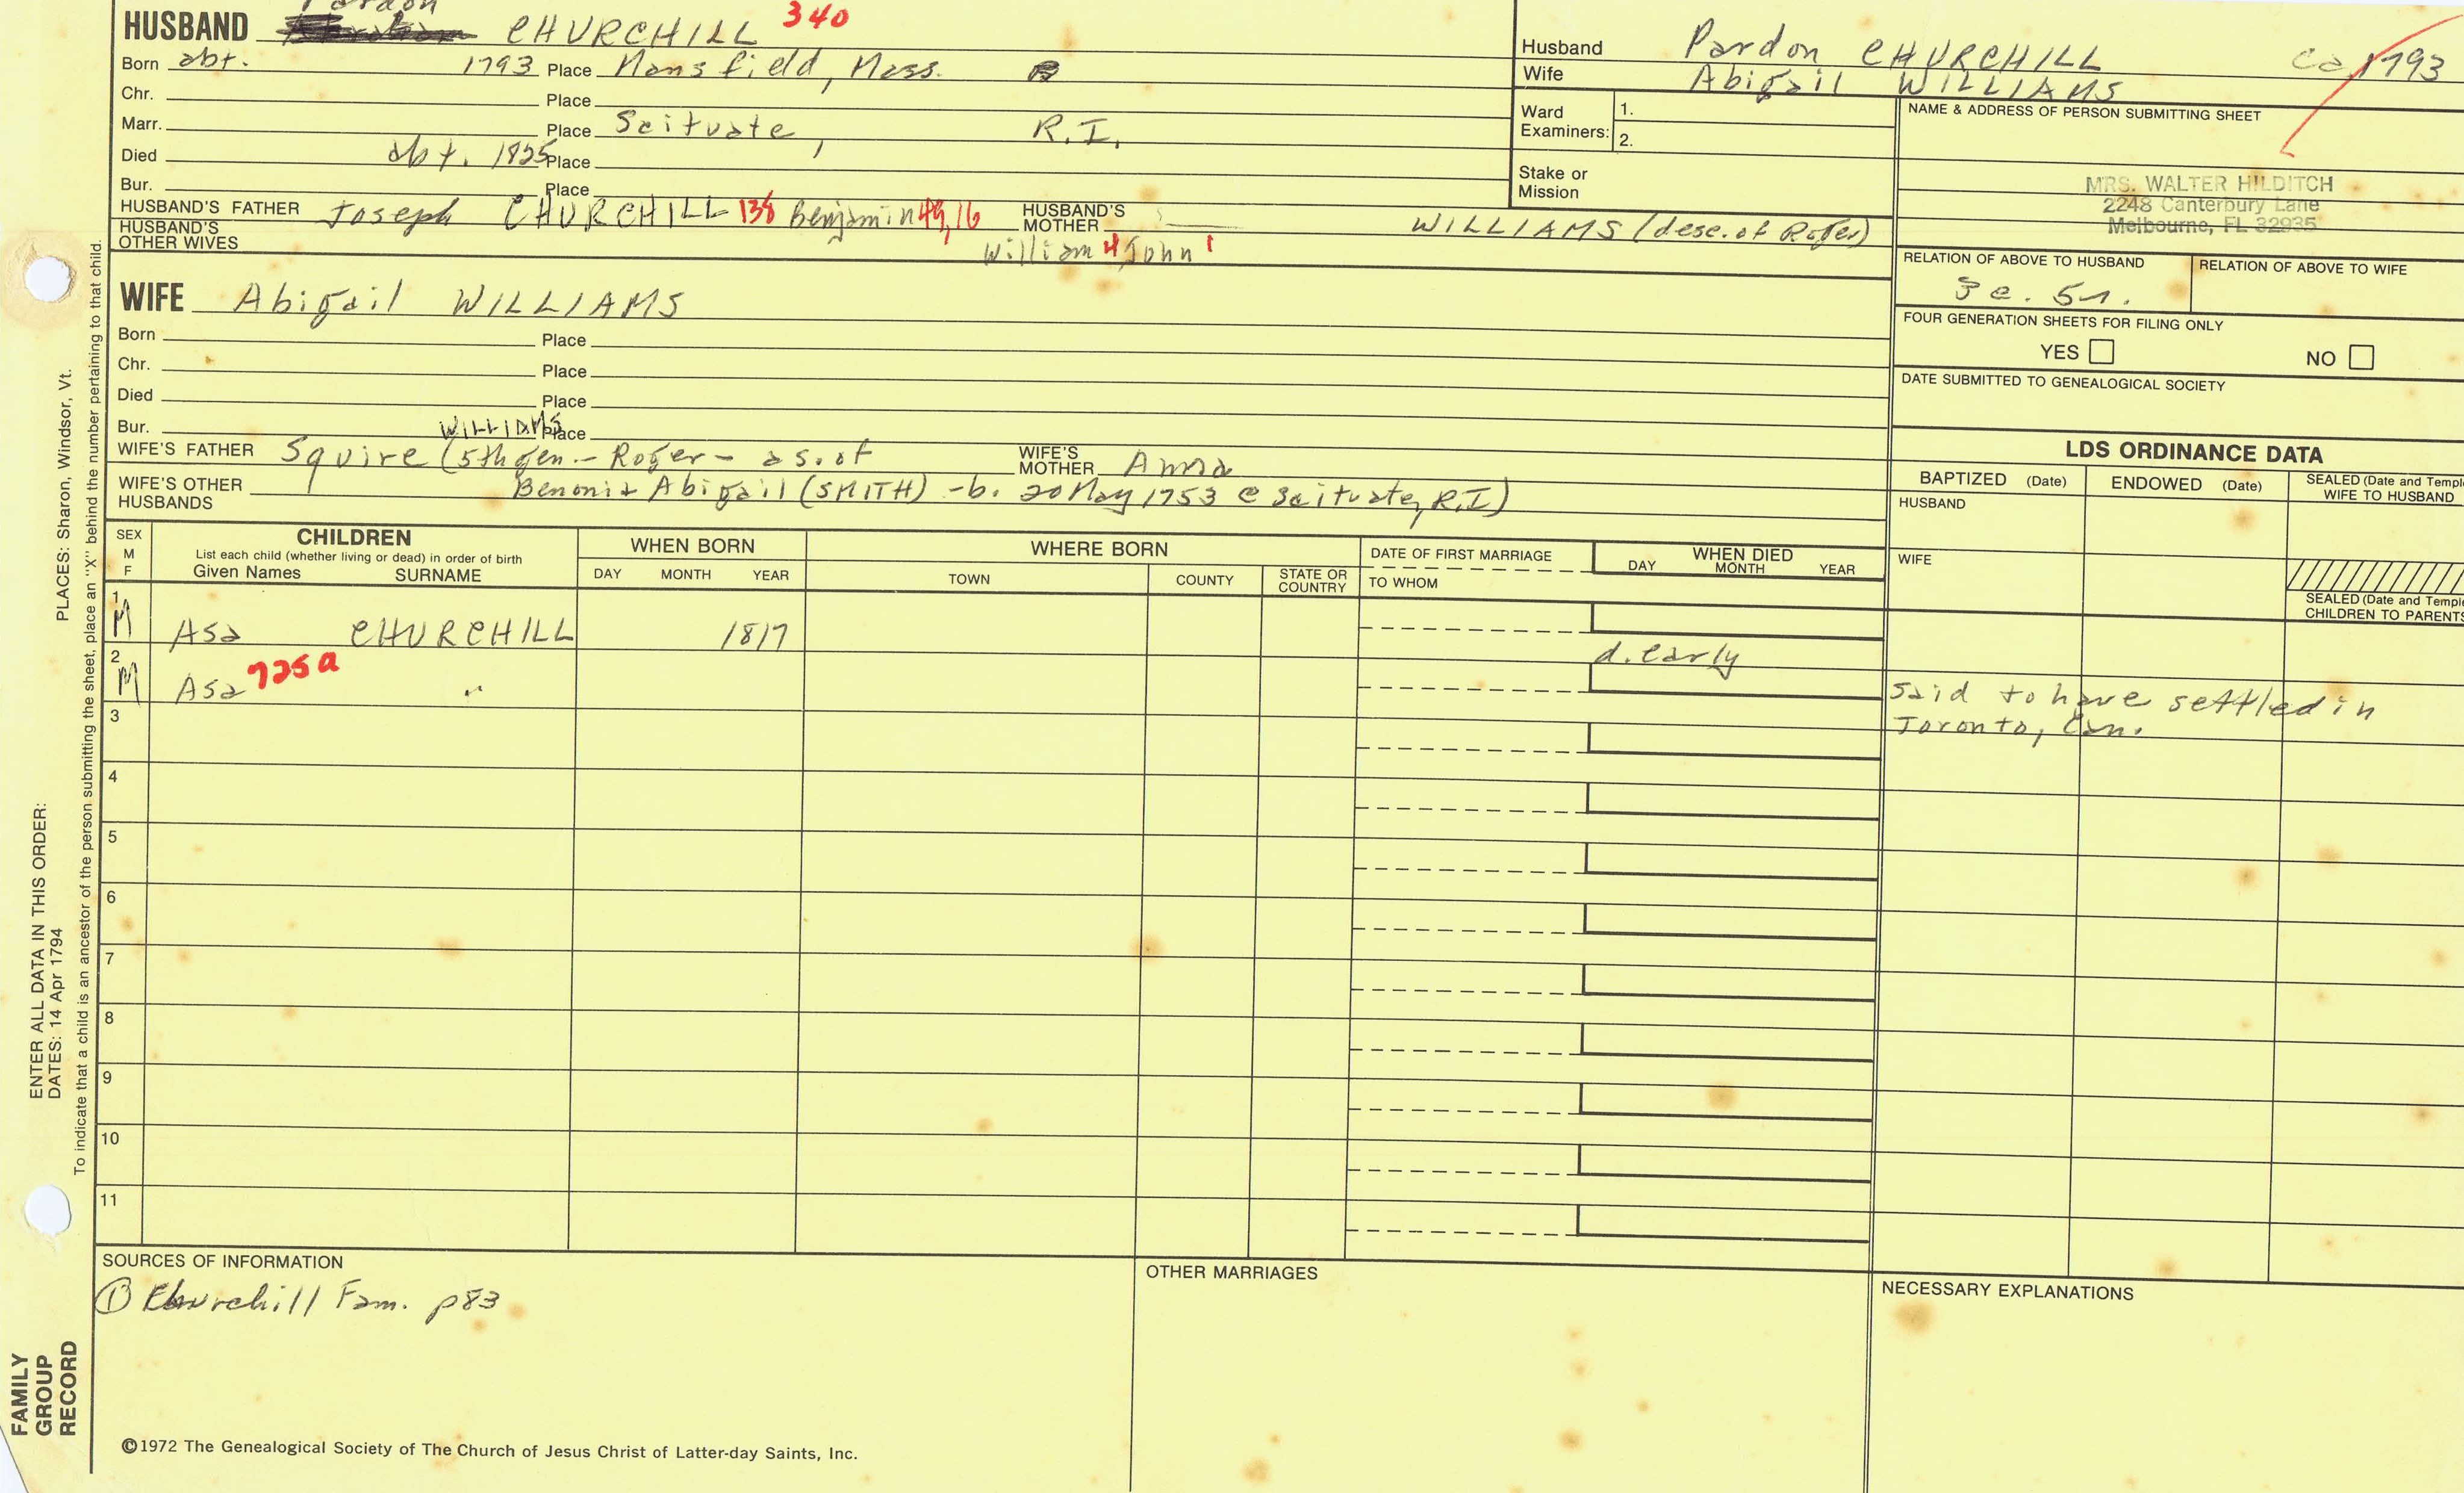 Pardon
HUSBAND CHURCHILL 340
Born abt. 1793 Place Mansfield, Mass.
Chr. Place
Marr. Place Scituate, R.I.
Died abt. 1825 Place
Bur. Place
HUSBAND'S FATHER Joseph CHURCHILL 138 Benjamin 49, 16 HUSBAND'S MOTHER WILLIAMS (desc. of Roger)
HUSBAND'S OTHER WIVES William 4 John 1
Husband Pardon CHURCHILL Ca 1793
Wife Abigail WILLIAMS
Ward Examiners: 1.
2.
Stake or Mission
NAME & ADDRESS OF PERSON SUBMITTING SHEET
MRS. WALTER HILDITCH
2248 Canterbury Lane
Melbourne, FL 32935
RELATION OF ABOVE TO HUSBAND RELATION OF ABOVE TO WIFE
FOUR GENERATION SHEETS FOR FILING ONLY
YES NO
DATE SUBMITTED TO GENEALOGICAL SOCIETY
WIFE Abigail WILLIAMS
Born Place
Chr. Place
Died Place
Bur. WILLIAMS Place
WIFE'S FATHER Squire (5th gen. - Roger - a s. of WIFE'S MOTHER Anna
WIFE'S OTHER HUSBANDS Benoni + Abigail (SMITH) - b. 20 May 1753 @ Scituate, R.I.)
LDS ORDINANCE DATA
BAPTIZED (Date) ENDOWED (Date) SEALED (Date and Temple
WIFE TO HUSBAND
HUSBAND
WIFE
SEALED (Date and Temple
CHILDREN TO PARENTS
SEX M F
CHILDREN
List each child (whether living or dead) in order of birth
Given Names SURNAME
WHEN BORN
DAY MONTH YEAR
WHERE BORN
TOWN COUNTY STATE OR COUNTRY
DATE OF FIRST MARRIAGE
TO WHOM
WHEN DIED
DAY MONTH YEAR
1 M Asa CHURCHILL 1817
d. early
2 M Asa 725a "
Said to have settled in
Toronto, Can.
3
4
5
6
7
8
9
10
11
SOURCES OF INFORMATION
① Churchill Fam. p83
OTHER MARRIAGES
NECESSARY EXPLANATIONS
©1972 The Genealogical Society of The Church of Jesus Christ of Latter-day Saints, Inc.
FAMILY
GROUP
RECORD
ENTER ALL DATA IN THIS ORDER:
DATES: 14 Apr 1794
PLACES: Sharon, Windsor, Vt.
To indicate that a child is an ancestor of the person submitting the sheet, place an "X" behind the number pertaining to that child.